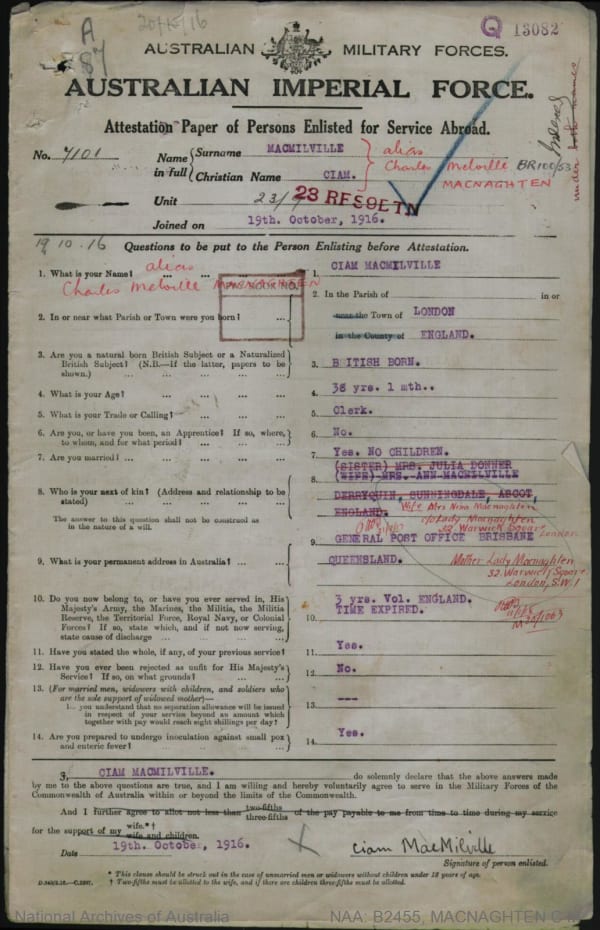 A
87
20/10/16
Q 13082
AUSTRALIAN MILITARY FORCES.
AUSTRALIAN IMPERIAL FORCE.
Attestation Paper of Persons Enlisted for Service Abroad.
No. 7101
Name in full
Surname MACMILVILLE
Christian Name CIAM.
alias
Charles Melville
MACNAGHTEN
BR100/53
Indexed under both names
Unit 23/ 23 REG BETN
Joined on 19th. October, 1916.
19 10 16
Questions to be put to the Person Enlisting before Attestation.
1. What is your Name? ... ... ...
1. CIAM MACMILVILLE
alias
Charles Melville MACNAGHTEN
2. In or near what Parish or Town were you born? ...
2. In the Parish of in or
near the Town of LONDON
in the County of ENGLAND.
3. Are you a natural born British Subject or a Naturalized
British Subject? (N.B.—If the latter, papers to be
shown.) ... ... ... ... ...
3. BRITISH BORN.
4. What is your Age? ... ... ... ...
4. 38 yrs. 1 mth..
5. What is your Trade or Calling? ... ... ...
5. Clerk.
6. Are you, or have you been, an Apprentice? If so, where,
to whom, and for what period? ... ... ...
6. No.
7. Are you married? ... ... ... ...
7. Yes. NO CHILDREN.
8. Who is your next of kin? (Address and relationship to be
stated) ... ... ... ... ...
The answer to this question shall not be construed as
in the nature of a will.
8. (SISTER) MRS. JULIA DONNER
(WIFE) MRS. ANN MACMILVILLE
DERRYQUIN, SUNNINGDALE, ASCOT,
ENGLAND.
Wife Mrs Nina Macnaghten
c/o Lady Macnaghten
32 Warwick Square
London
9. What is your permanent address in Australia? ... ...
9. GENERAL POST OFFICE BRISBANE
QUEENSLAND.
Mother Lady Macnaghten
32. Warwick Square
London, S.W.1
10. Do you now belong to, or have you ever served in, His
Majesty's Army, the Marines, the Militia, the Militia
Reserve, the Territorial Force, Royal Navy, or Colonial
Forces? If so, state which, and if not now serving,
state cause of discharge ... ... ... ...
10. 3 yrs. Vol. ENGLAND.
TIME EXPIRED.
11. Have you stated the whole, if any, of your previous service?
11. Yes.
12. Have you ever been rejected as unfit for His Majesty's
Service? If so, on what grounds? ... ...
12. No.
13. (For married men, widowers with children, and soldiers who
are the sole support of widowed mother)—
Do you understand that no separation allowance will be issued
in respect of your service beyond an amount which
together with pay would reach eight shillings per day?
13. ---
14. Are you prepared to undergo inoculation against small pox
and enteric fever? ... ... ... ...
14. Yes.
I, CIAM MACMILVILLE. do solemnly declare that the above answers made
by me to the above questions are true, and I am willing and hereby voluntarily agree to serve in the Military Forces of the
Commonwealth of Australia within or beyond the limits of the Commonwealth.
And I further agree to allot not less than two-fifths three-fifths of the pay payable to me from time to time during my service
for the support of my wife.*† wife and children.
Date 19th. October, 1916.
X
Ciam MacMilville
Signature of person enlisted.
* This clause should be struck out in the case of unmarried men or widowers without children under 18 years of age.
† Two-fifths must be allotted to the wife, and if there are children three-fifths must be allotted.
National Archives of Australia
NAA: B2455, MACNAGHTEN C M